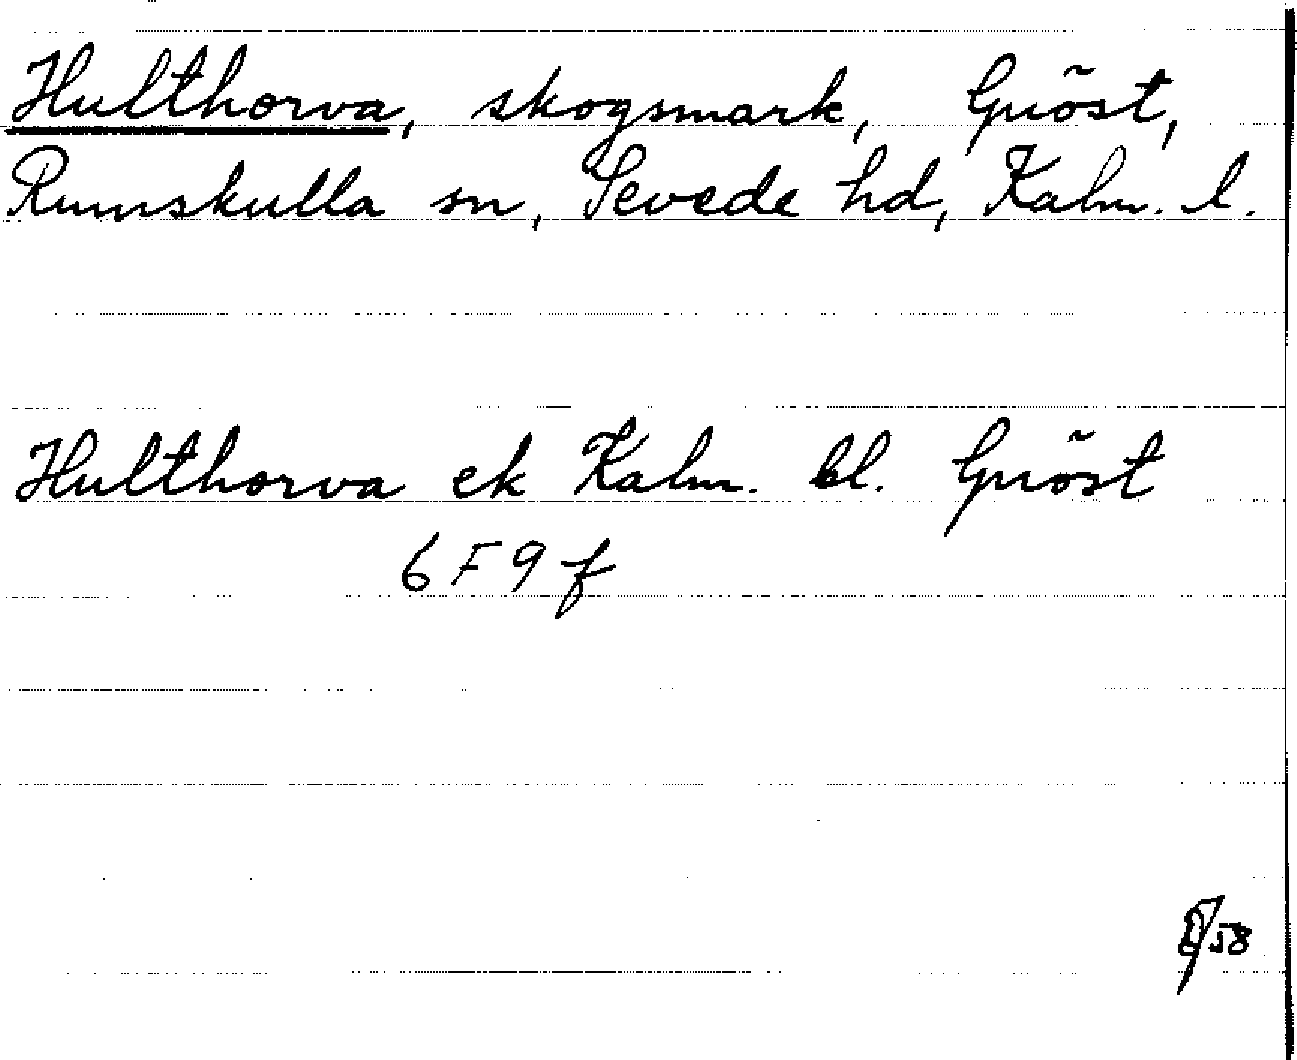 Hulthorva, skogsmark, Gnöst,
Rumskulla sn, Sevede hd, Kalm. l.
Hulthorva ek Kalm. bl. Gnöst
6 F 9 f
58